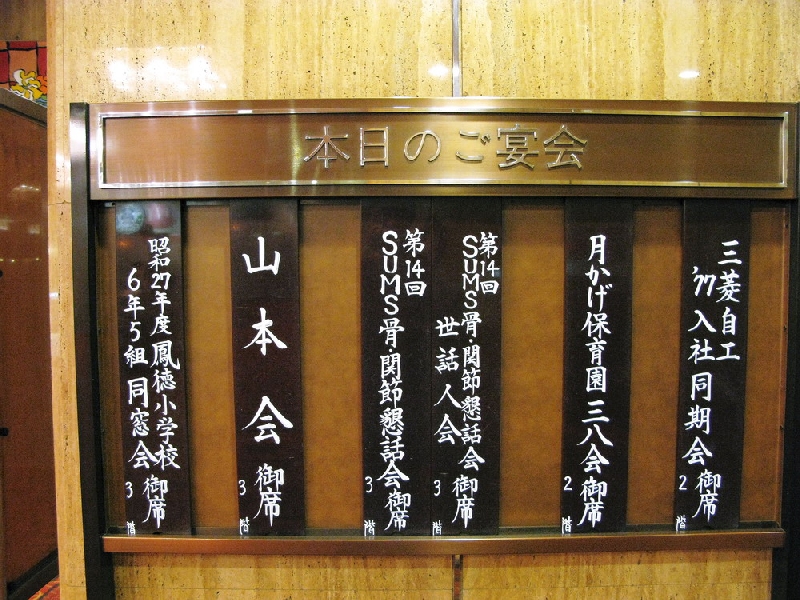 本日のご宴会
三菱自工
'77入社同期会御席
2階
月かげ保育園三八会御席
2階
第14回
SUMS骨・関節懇話会
世話人会御席
3階
第14回
SUMS骨・関節懇話会御席
3階
山本会御席
3階
昭和27年度鳳徳小学校
6年5組同窓会御席
3階